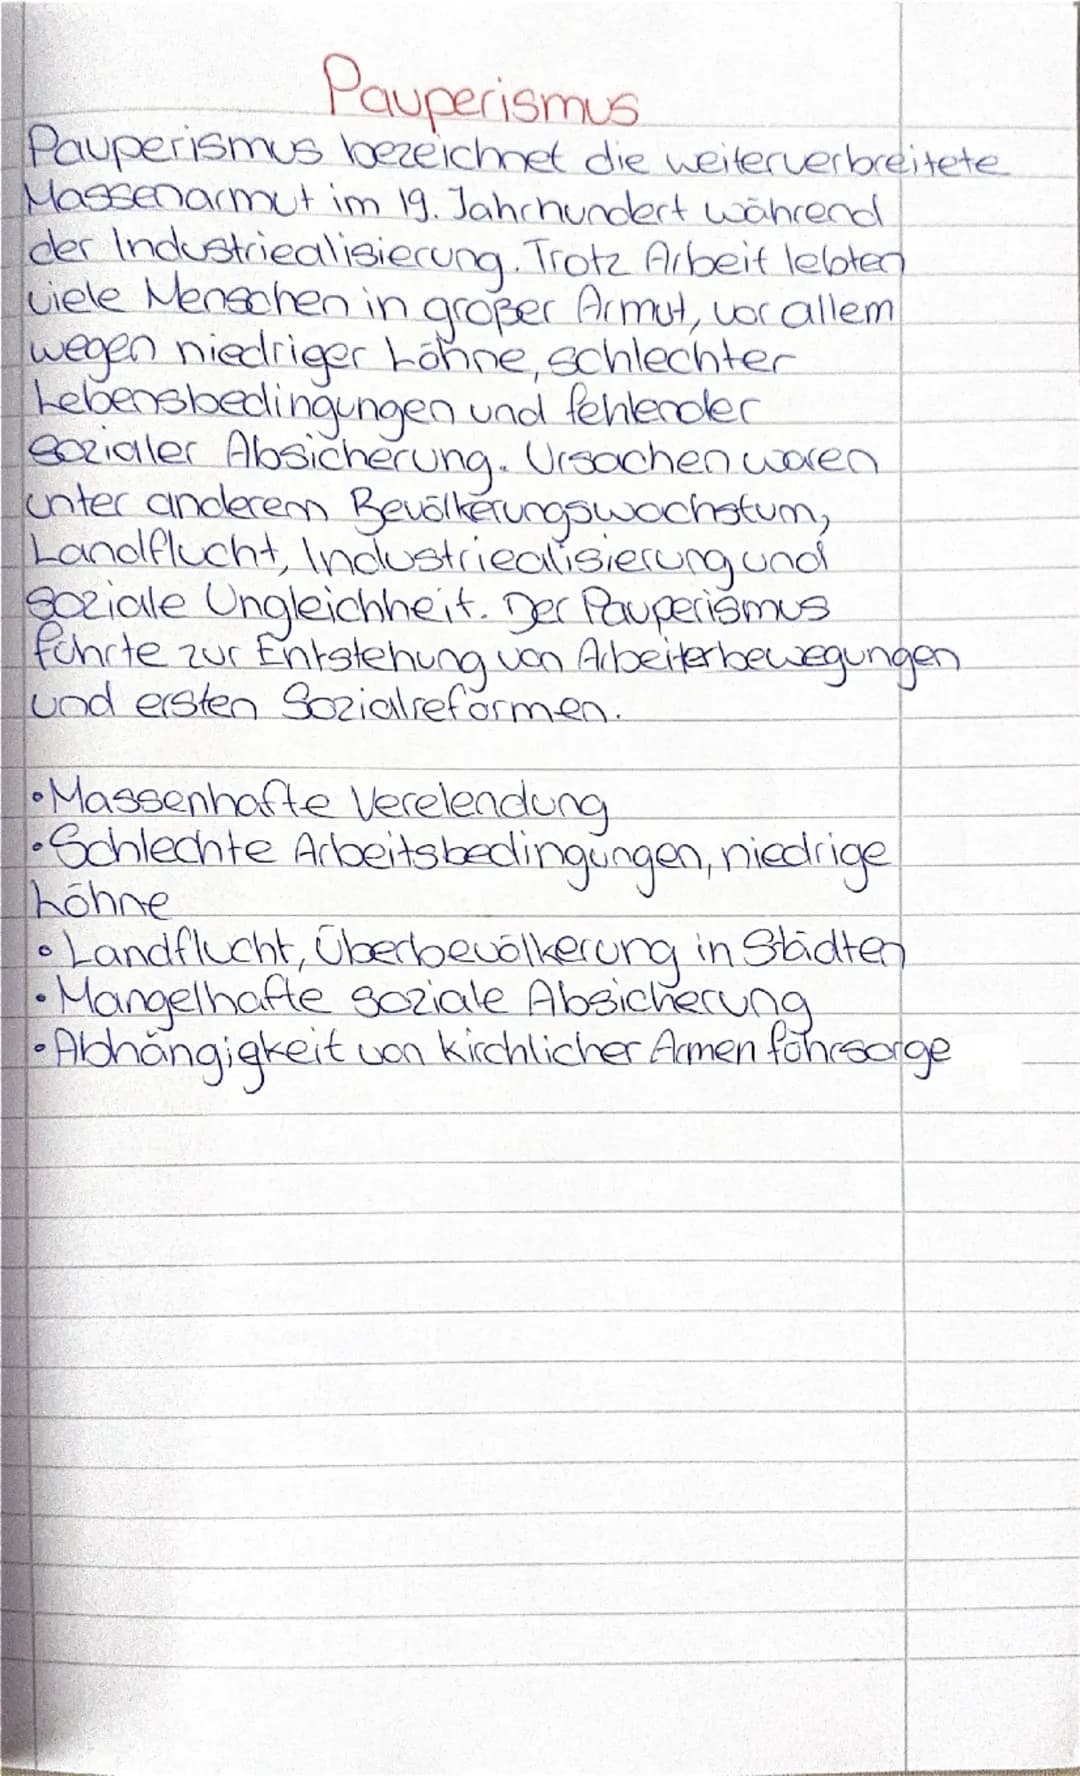 Pauperismus
Pauperismus bezeichnet die weiterverbreitete
Massenarmut im 19. Jahrhundert während
der Industriealisierung. Trotz Arbeit lebten
viele Menschen in großer Armut, vor allem
wegen niedriger Löhne, schlechter
Lebensbedingungen und fehlender
sozialer Absicherung. Ursachen waren
unter anderem Bevölkerungswachstum,
Landflucht, Industriealisierung und
soziale Ungleichheit. Der Pauperismus
führte zur Entstehung von Arbeiterbewegungen
und ersten Sozialreformen.
• Massenhafte Verelendung
• Schlechte Arbeitsbedingungen, niedrige
Löhne
• Landflucht, Überbevölkerung in Städten
• Mangelhafte soziale Absicherung
• Abhängigkeit von kirchlicher Armen führsorge